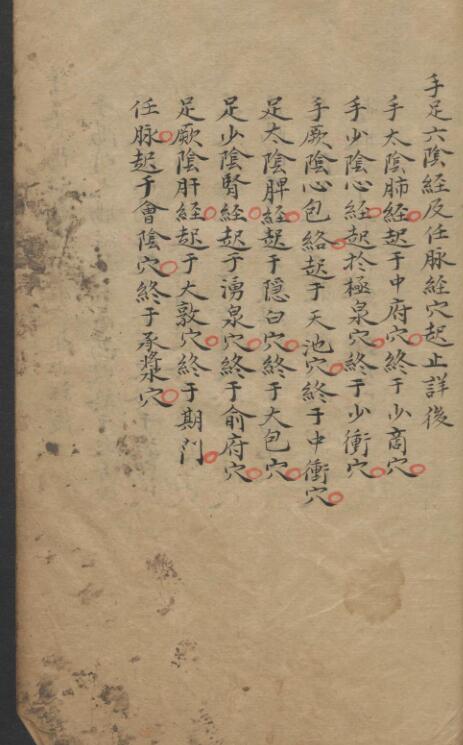 手足六陰経及任脉経穴起止詳後
手太陰肺経起于中府穴終于少商穴
手少陰心経起於極泉穴終于少衝穴
手厥陰心包絡起于天池穴終于中衝穴
足太陰脾経起于隠白穴終于大包穴
足少陰腎経起于湧泉穴終于俞府穴
足厥陰肝経起于大敦穴終于期门
任脉起于會陰穴終于承漿穴